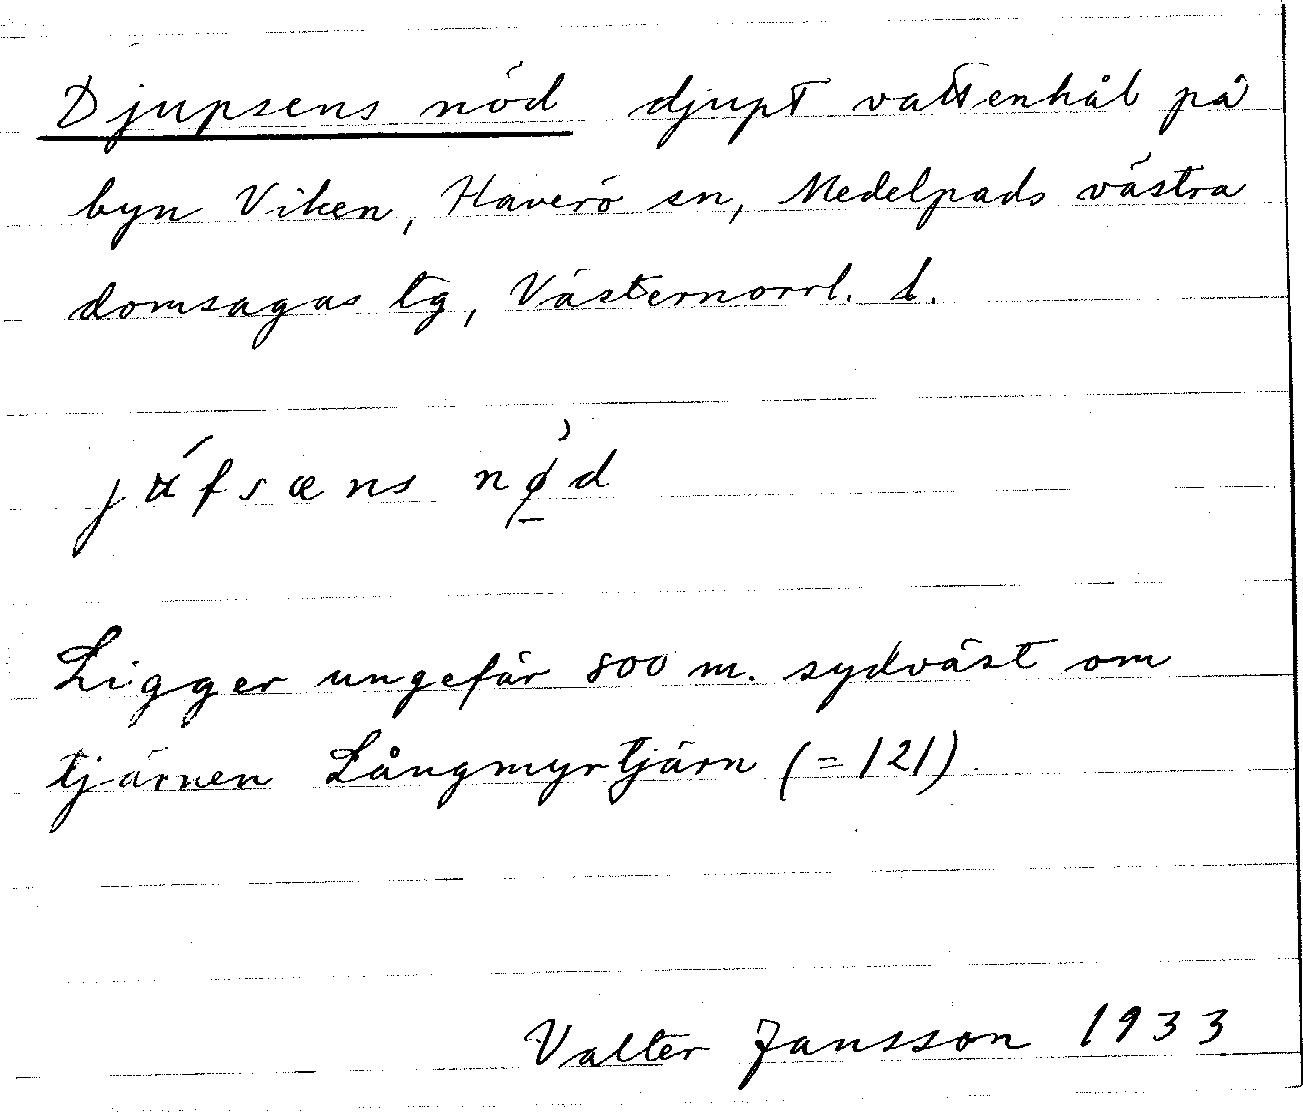 Djupsens nöd djupt vattenhål på
byn Viken, Haverö sn, Medelpads västra
domsagas tg, Västernorrl. l.
jʉ́fsæns nø̠̀d
Ligger ungefär 800 m. sydväst om
tjärnen Långmyrtjärn (=121).
Valter Jansson 1933